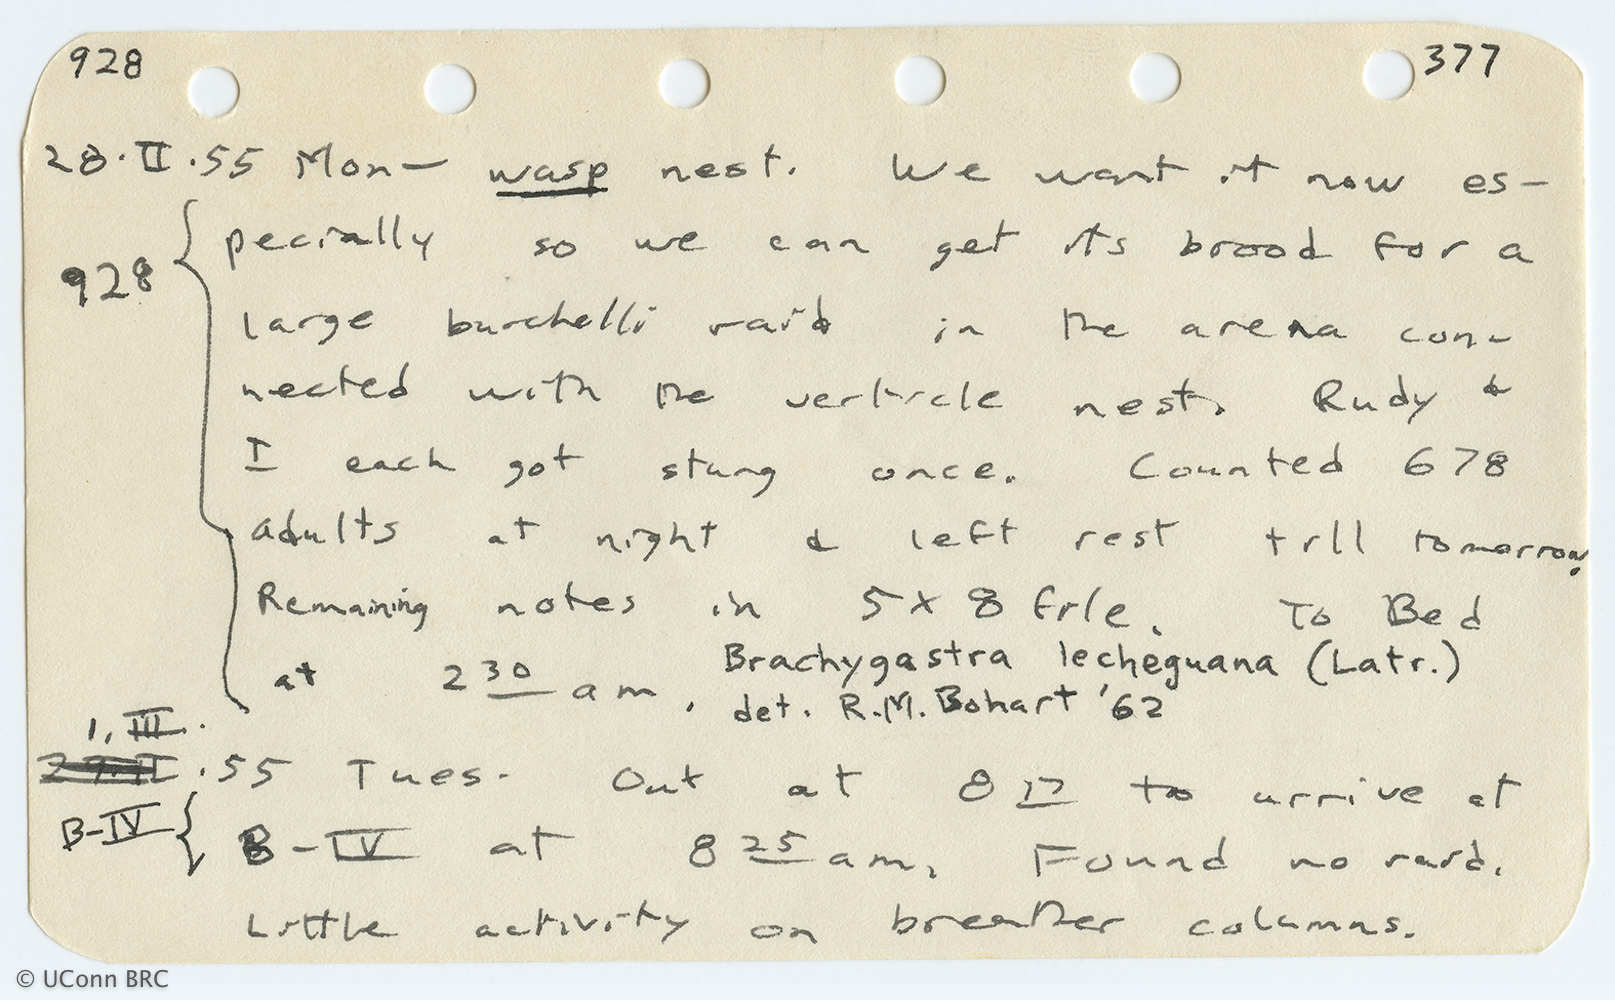 928 377
28·II·55 Mon— wasp nest. We want it now es-
pecially so we can get its brood for a
928
large burchelli raid in the arena con-
nected with the verticle nest. Rudy &
I each got stung once. Counted 678
adults at night & left rest till tomorrow.
Remaining notes in 5 x 8 file. To Bed
at 2 30 am.
Brachygastra lecheguana (Latr.)
det. R.M. Bohart '62
1, III.
29·II·55 Tues. Out at 8 17 to arrive at
B-IV
B-IV at 8 25 am. Found no raid.
Little activity on breather columns.
© UConn BRC